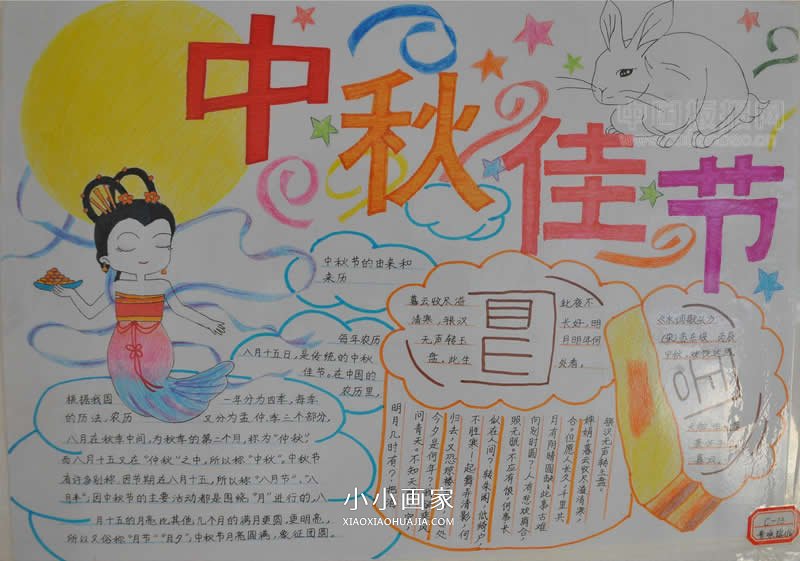 中秋佳节
中秋节的由来和
来历
每年农历
八月十五日,是传统的中秋
佳节。在中国的
农历里,
根据我国 一年分为四季,每季
的历法,农历 又分为孟仲季三个部分,
八月在秋季中间,为秋季的第二个月,称为“仲秋”
而八月十五又在“仲秋”之中,所以称“中秋”。中秋节
有许多别称:因节期在八月十五,所以称“八月节”、“八
月半”;因中秋节的主要活动都是围绕“月”进行的,八
月十五的月亮比其他几个月的满月更圆,更明亮,
所以又俗称“月节”“月夕”,中秋节月亮圆满,象征团圆。
暮云收尽溢
清寒,银汉
无声转玉
盘,此生
此夜不
长好,明
月明年何
处看。
明月几时有?
问青天。不知天
今夕是何年?
归去,又恐琼
不胜寒!起舞弄清影,何
似在人间?转朱阁,低绮户,
照无眠。不应有恨,何事长
向别时圆?人有悲欢离合,
月有阴晴圆缺,此事古难
全。但愿人长久,千里共
婵娟。暮云收尽溢清寒,
银汉无声转玉盘。
小小画家
XIAOXIAOHUAJIA.COM